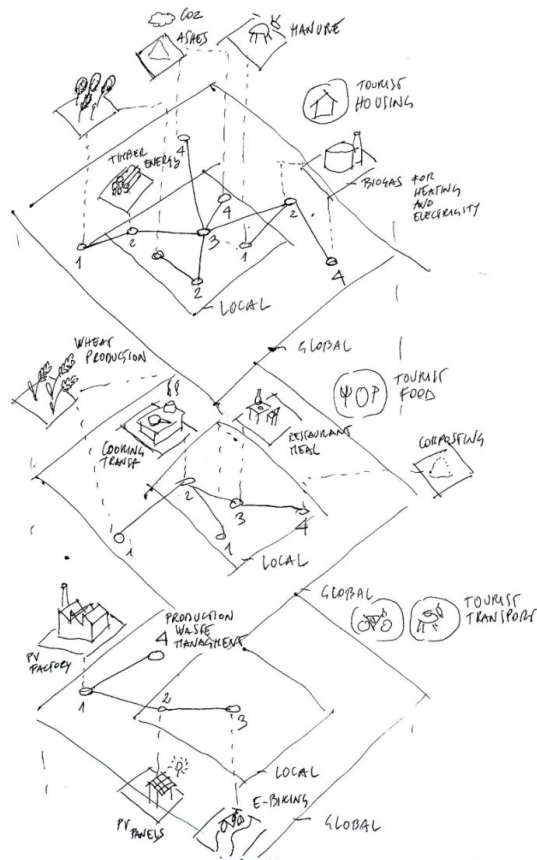 CO2
ASHES
MANURE
TOURIST
HOUSING
TIMBER
ENERGY
4
BIOGAS FOR
HEATING
AND
ELECTRICITY
4
2
2
3
1
1
4
2
LOCAL
GLOBAL
WHEAT
PRODUCTION
TOURIST
FOOD
COOKING
TRANSF
RESTAURANT
MEAL
COMPOSTING
2
3
4
1
1
LOCAL
GLOBAL
TOURIST
TRANSPORT
PRODUCTION
WASTE
MANAGMENT
4
PV
FACTORY
1
2
3
LOCAL
E-BIKING
GLOBAL
PV
PANELS